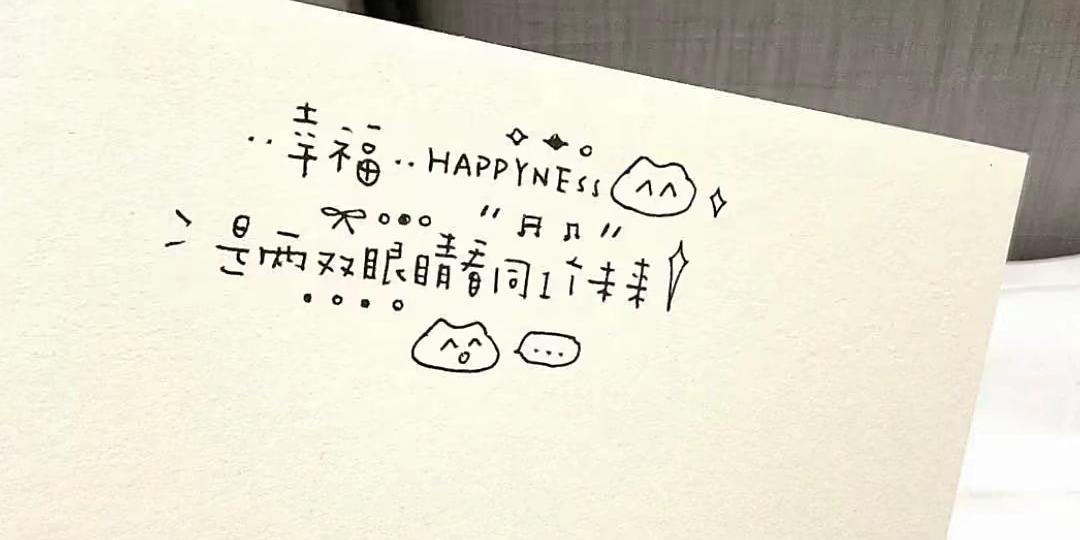 ..幸福..HAPPYNESS
是两双眼睛看同1个未来
...